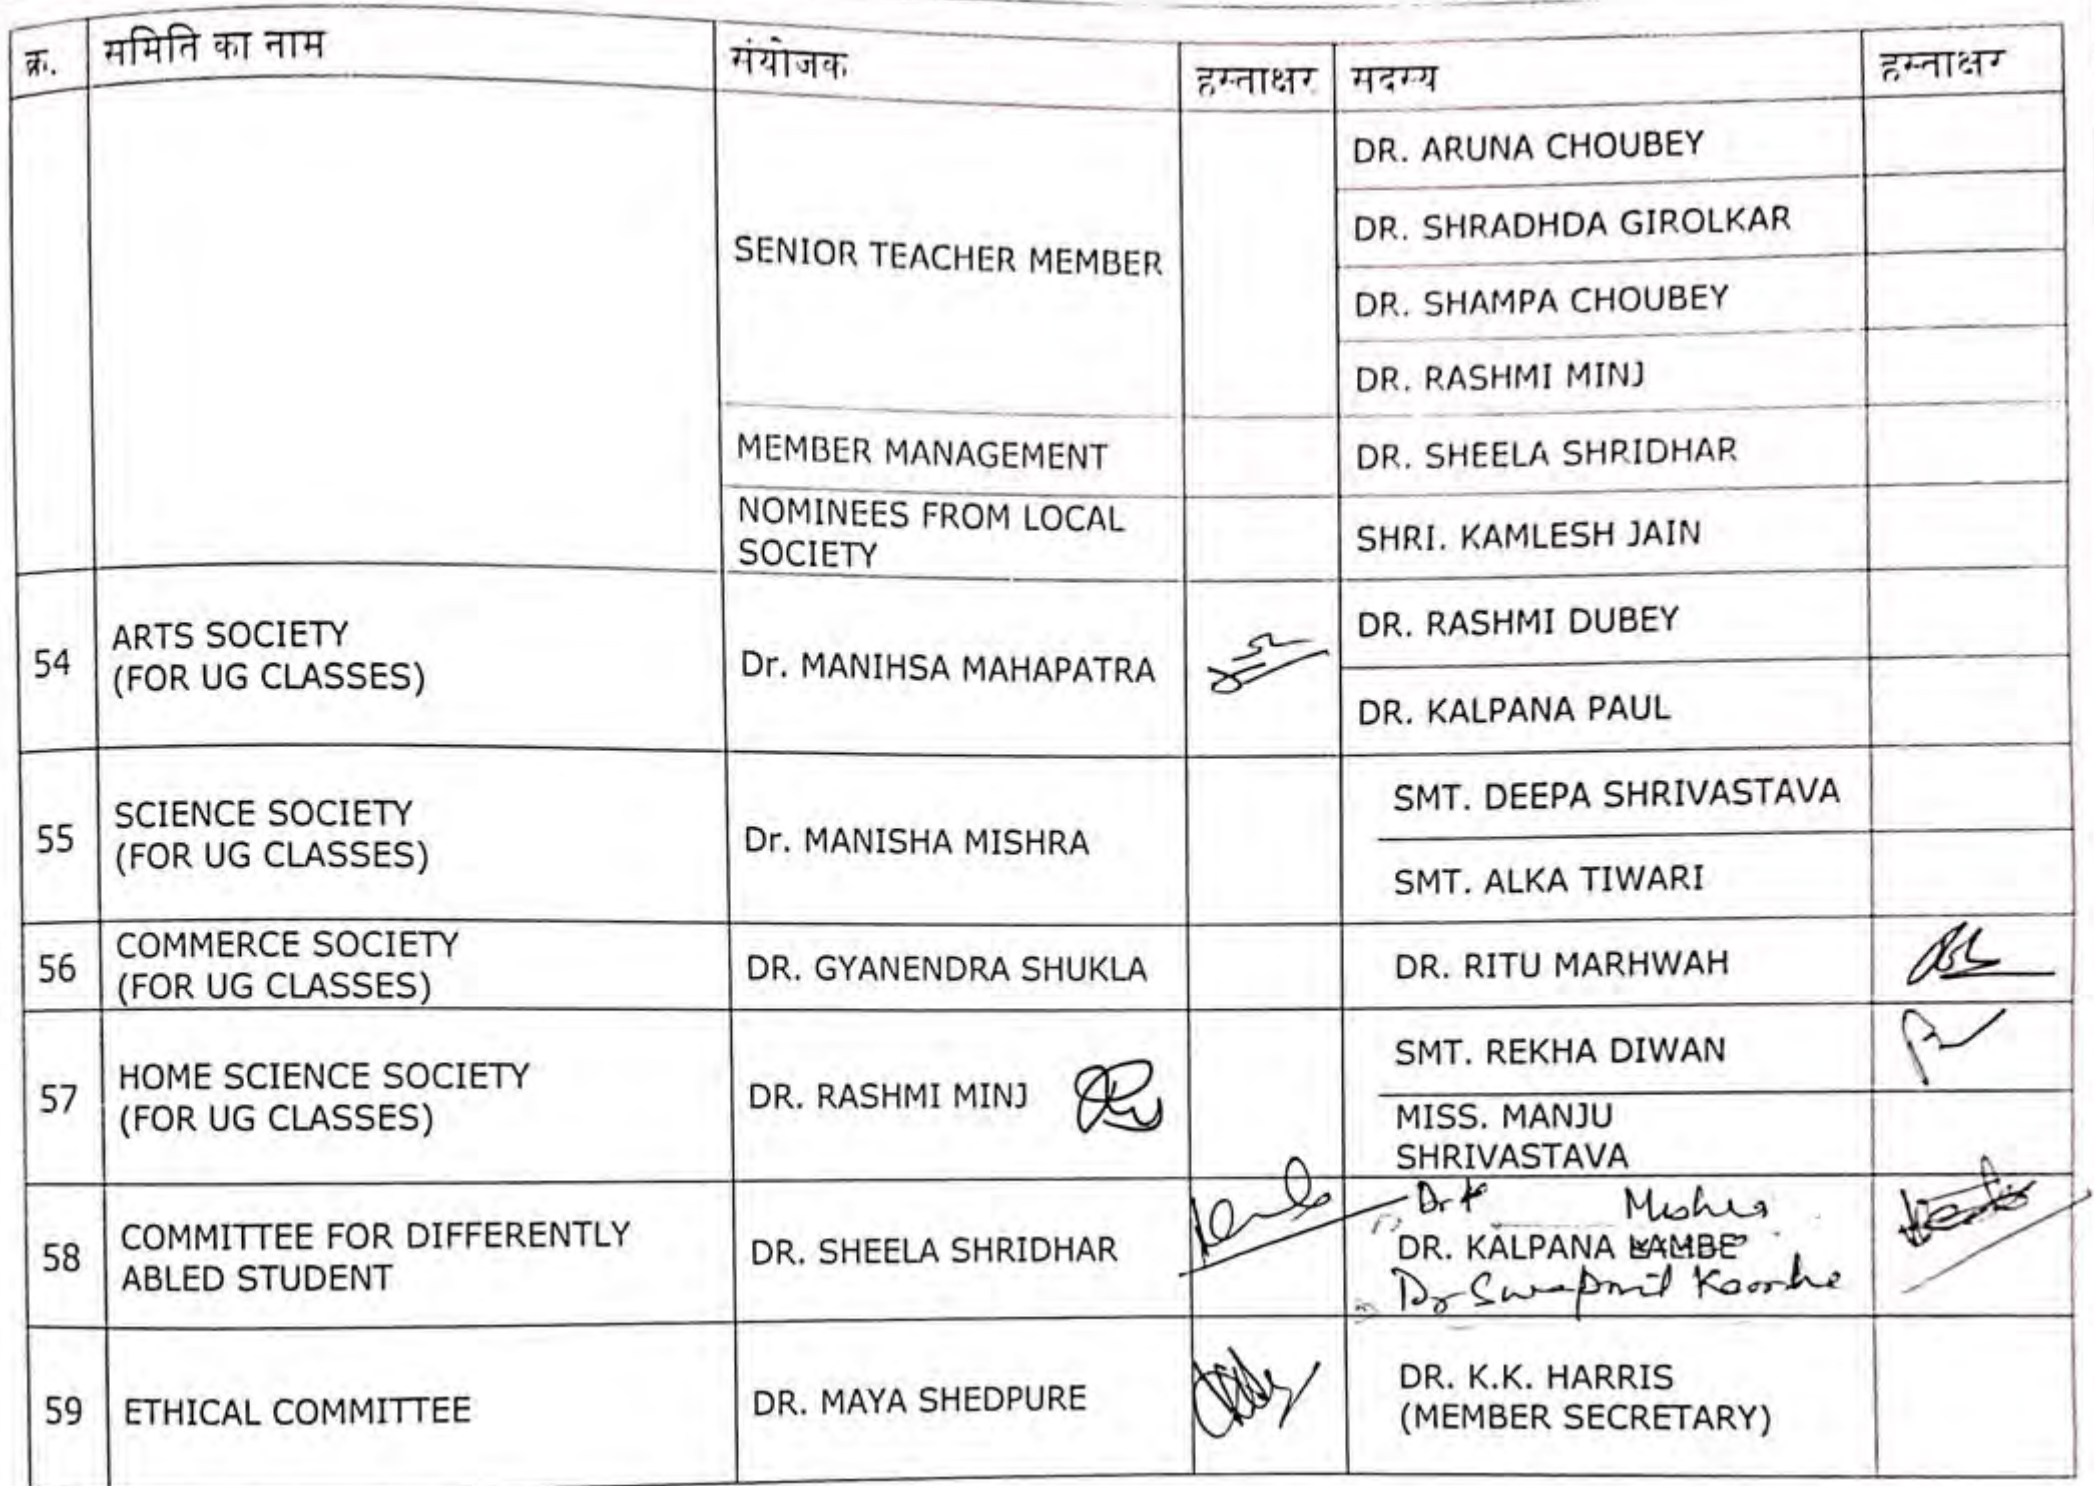 क्र. समिति का नाम संयोजक हस्ताक्षर सदस्य हस्ताक्षर
SENIOR TEACHER MEMBER
DR. ARUNA CHOUBEY
DR. SHRADHDA GIROLKAR
DR. SHAMPA CHOUBEY
DR. RASHMI MINJ
MEMBER MANAGEMENT DR. SHEELA SHRIDHAR
NOMINEES FROM LOCAL
SOCIETY
SHRI. KAMLESH JAIN
54
ARTS SOCIETY
(FOR UG CLASSES)
Dr. MANIHSA MAHAPATRA
DR. RASHMI DUBEY
DR. KALPANA PAUL
55
SCIENCE SOCIETY
(FOR UG CLASSES)
Dr. MANISHA MISHRA
SMT. DEEPA SHRIVASTAVA
SMT. ALKA TIWARI
56
COMMERCE SOCIETY
(FOR UG CLASSES)
DR. GYANENDRA SHUKLA
DR. RITU MARHWAH
57
HOME SCIENCE SOCIETY
(FOR UG CLASSES)
DR. RASHMI MINJ
SMT. REKHA DIWAN
MISS. MANJU
SHRIVASTAVA
58
COMMITTEE FOR DIFFERENTLY
ABLED STUDENT
DR. SHEELA SHRIDHAR
Dr
DR. KALPANA LAMBE
Dr Swapnil
59
ETHICAL COMMITTEE
DR. MAYA SHEDPURE
DR. K.K. HARRIS
(MEMBER SECRETARY)